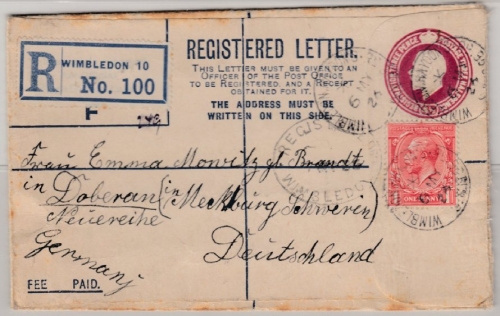 REGISTERED LETTER.
THIS LETTER MUST BE GIVEN TO AN
OFFICER OF THE POST OFFICE
TO BE REGISTERED, AND A RECEIPT
OBTAINED FOR IT.
THE ADDRESS MUST BE
WRITTEN ON THIS SIDE.
R
WIMBLEDON 10
No. 100
T
POSTAGE
ONE PENNY
WIMBLEDON
6 MY
25
REGISTERED
WIMBLEDON
Frau Emma Monwitz gb. Brandt
in Doberan (in Mecklburg Schwerin)
Neuereihe
Germany
Deutschland
FEE PAID.